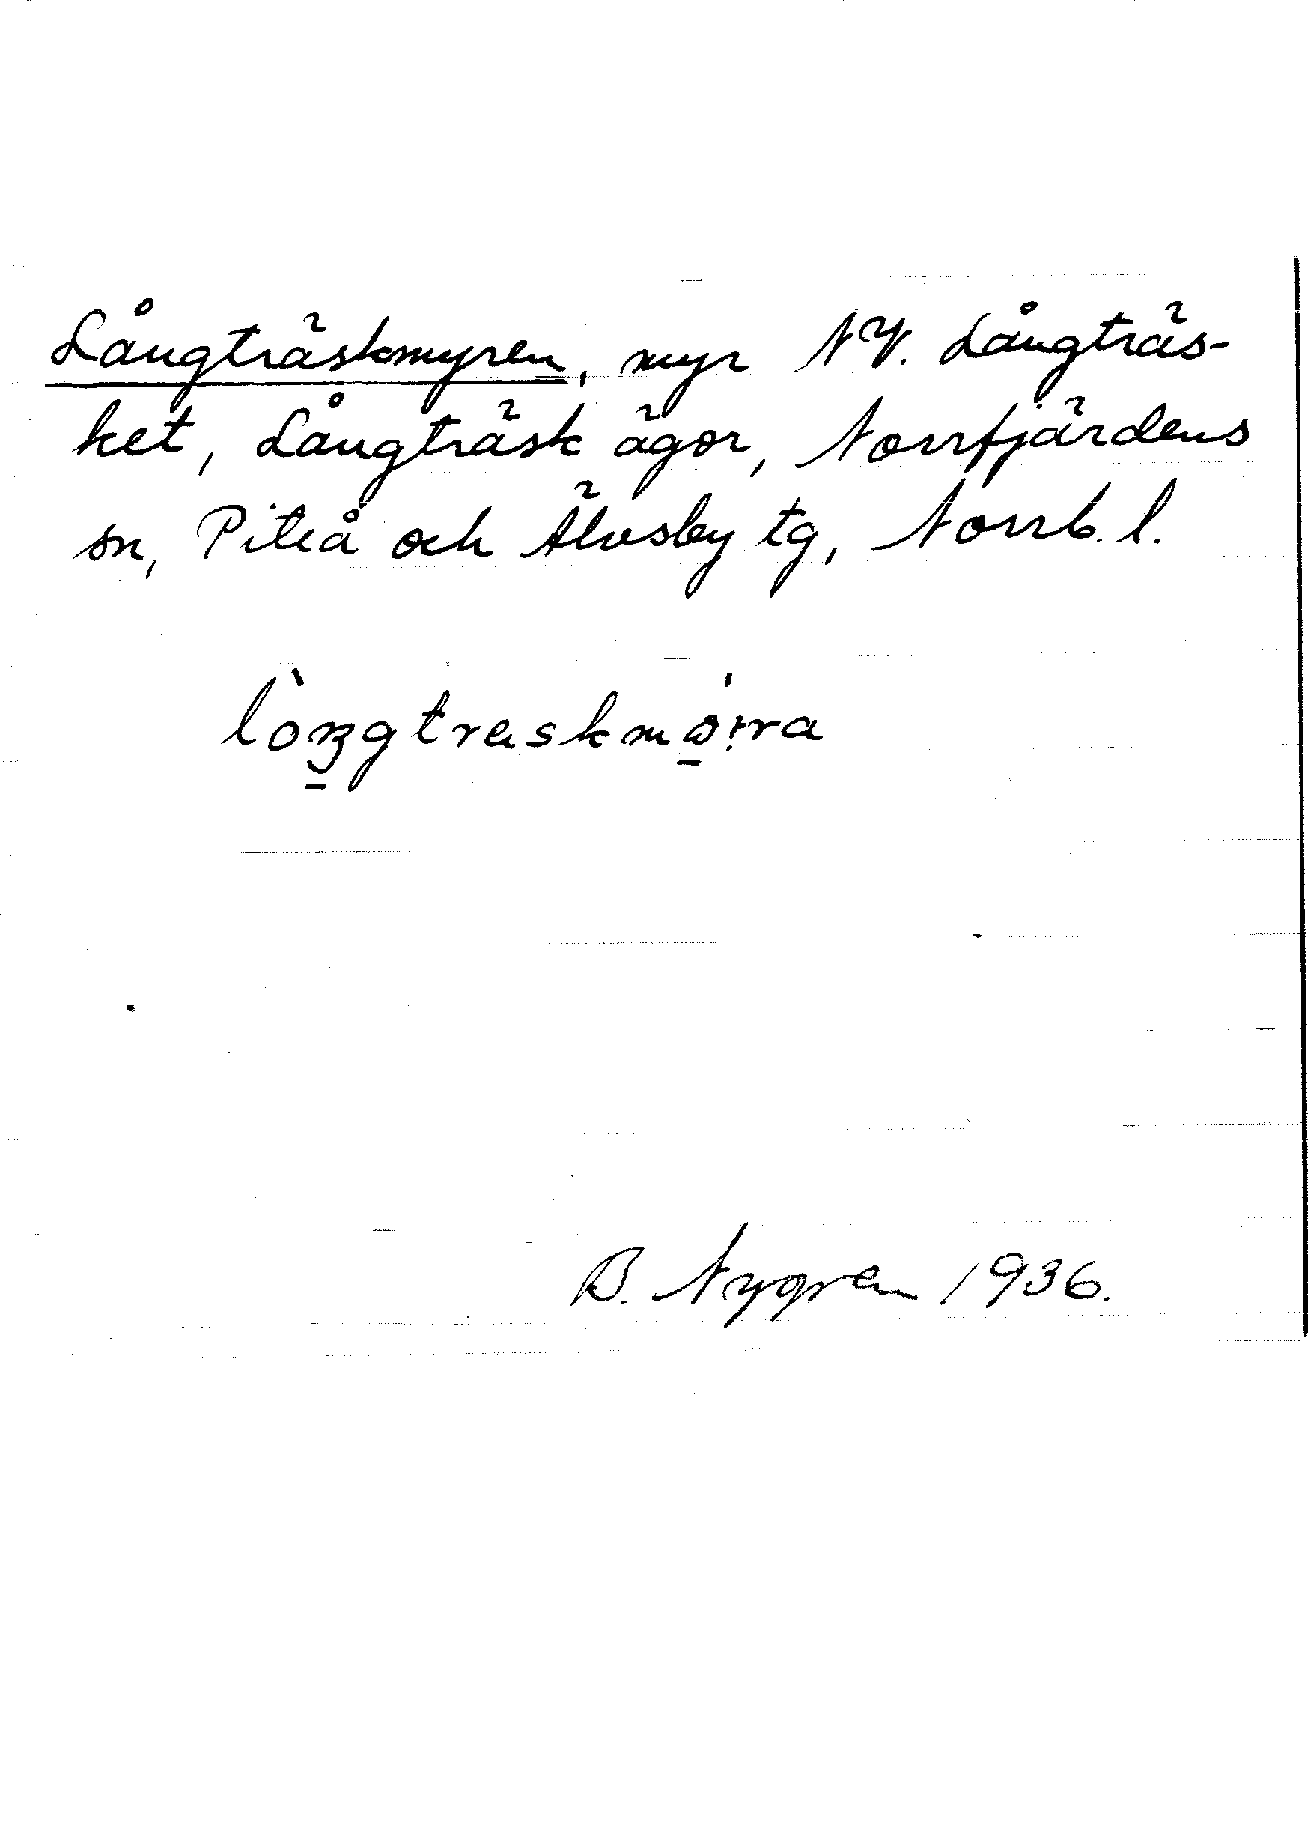 Långträskmyren, myr NV. Långträs-
ket, Långträsk ägor, Norrfjärdens
sn, Piteå och Älvsby tg, Norrb. l.
B. Nygren 1936.